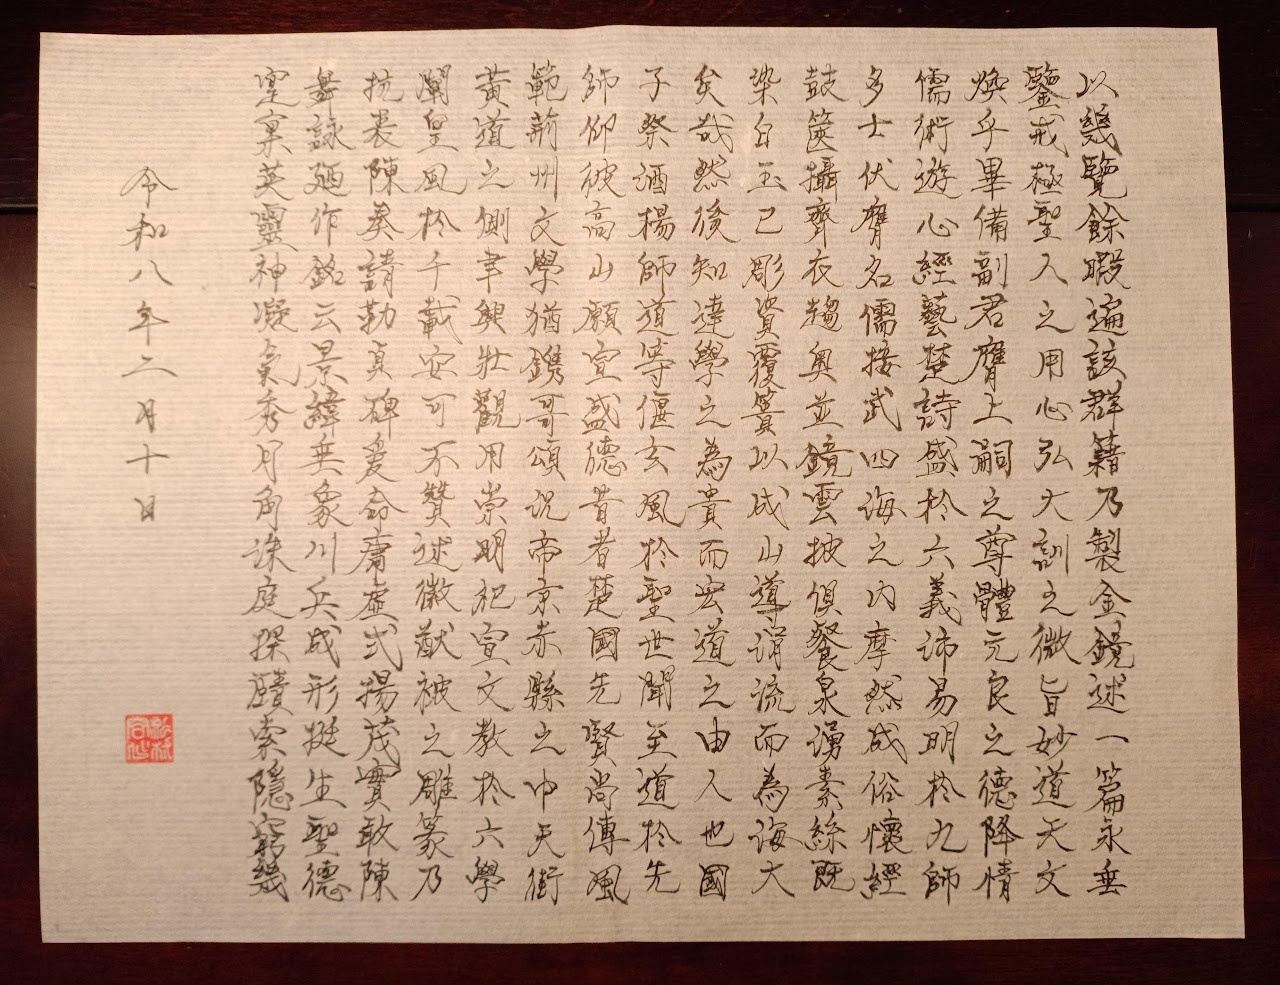 以幾覽餘暇遍該群籍乃製金鏡述一篇永垂
鑒戒極聖人之用心弘大訓之微旨妙道天文
煥乎畢備副君膺上嗣之尊體元良之德降情
儒術遊心經藝楚詩盛於六義沛易明於九師
多士伏膺名儒接武四海之內靡然成俗懷經
鼓篋攝齊衣趨奧並鏡雲披俱餐泉湧素絲既
染白玉已彫資覆簣以成山導涓流而為海大
矣哉然後知達學之為貴而宏道之由人也國
子祭酒楊師道等偃玄風於聖世聞至道於先
師仰彼高山願宣盛德昔者楚國先賢尚傳風
範荊州文學猶鐫哥頌況帝京赤縣之中天街
黃道之側聿興壯觀用崇明祀宣文教於六學
闡皇風於千載安可不贊述徽猷被之雕篆乃
抗表陳奏請勒貞碑爰命庸虛式揚茂實敢陳
舞詠廼作銘云景緯垂象川岳成形挺生聖德
寔稟英靈神凝氣秀月角洙庭探賾索隱窮幾
令和八年二月十日